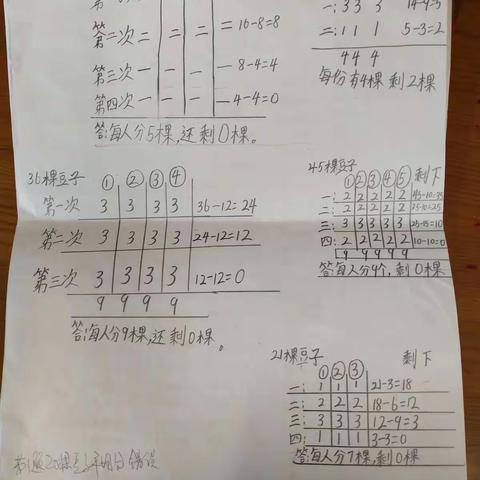 第二次 二 二 二 二 16-8=8
第三次 一 一 一 一 8-4=4
第四次 一 一 一 一 4-4=0
答:每人分5棵,还剩0棵。
一: 3 3 3 14-9=5
二: 1 1 1 5-3=2
4 4 4
每份有4棵 剩2棵
36棵豆子 ① ② ③ ④
第一次 3 3 3 3 36-12=24
第二次 3 3 3 3 24-12=12
第三次 3 3 3 3 12-12=0
9 9 9 9
答:每人分9棵,还剩0棵。
45棵豆子
① ② ③ ④ ⑤ 剩下
一: 2 2 2 2 2 45-10=35
二: 2 2 2 2 2 35-10=25
三: 3 3 3 3 3 25-15=10
四: 2 2 2 2 2 10-10=0
9 9 9 9 9
答:每人分9个,剩0棵
21棵豆子 剩下
① ② ③
一: 1 1 1 21-3=18
二: 2 2 2 18-6=12
三: 3 3 3 12-9=3
四: 1 1 1 3-3=0
答:每人分7棵,剩0棵